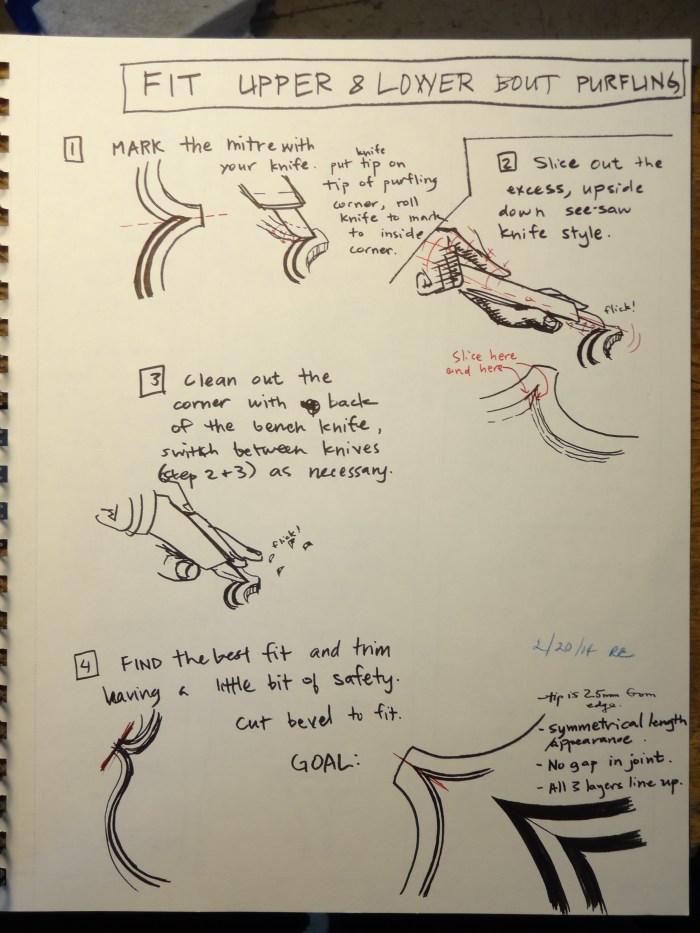 FIT UPPER & LOWER BOUT PURFLING
1 MARK the mitre with
your knife.
knife
put tip on
tip of purfling
corner, roll
knife to mark
to inside
corner.
2 Slice out the
excess, upside
down see-saw
knife style.
flick!
Slice here
and here
3 Clean out the
corner with back
of the bench knife,
switch between knives
(step 2+3) as necessary.
flick!
4 FIND the best fit and trim
leaving a little bit of safety.
cut bevel to fit.
GOAL:
2/20/14 RE
- tip is 2.5mm from
edge.
- symmetrical length
appearance.
- No gap in joint.
- All 3 layers line up.